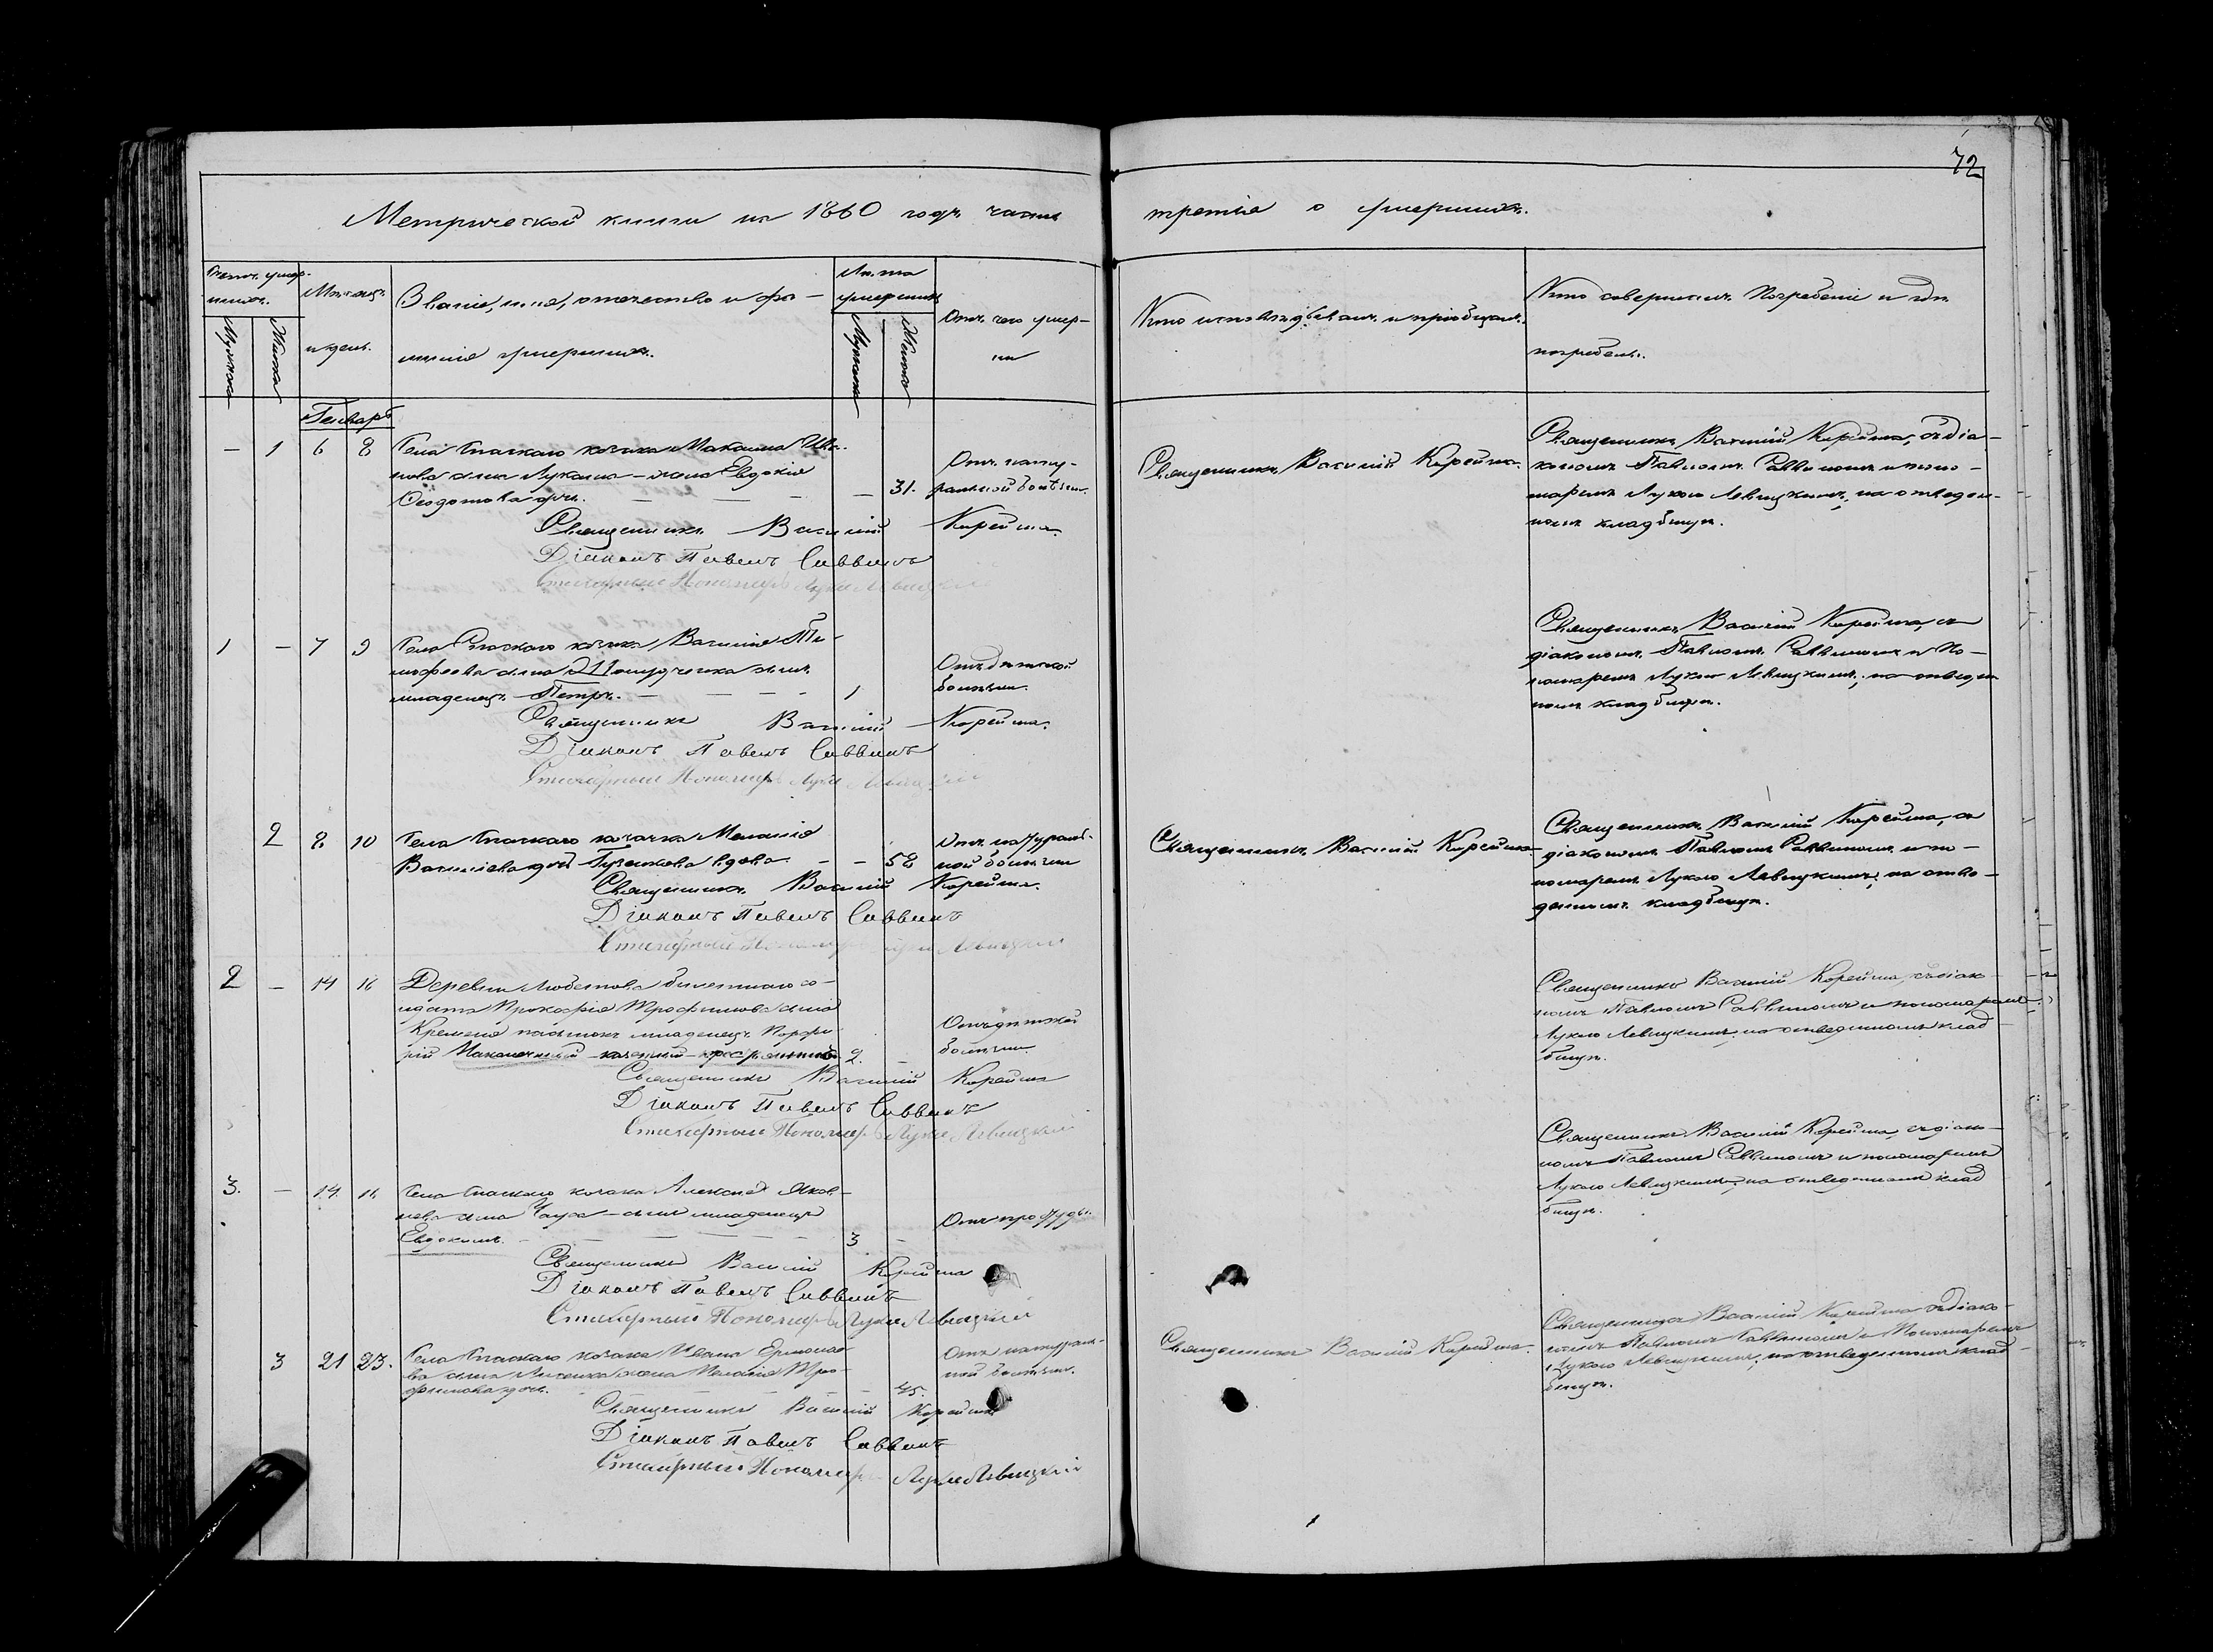 72
Метрической книги на 1860 годъ часть третья о умершихъ.
Счетъ умер-
шихъ.
Мужеска
Женска
Мѣсяцъ
и день.
Званіе, имя, отечество и фа-
милія умершихъ.
Лѣта
умершихъ
Мужеска
Женска
Отъ чего умер-
ли
Кто исповѣдывалъ и пріобщалъ.
Кто совершалъ погребеніе и гдѣ
погребены.
Генварь
— 1 6 8
Села Спаскаго козака Максима
сына жена Евдокія
Ѳеодотова дочь. — — — — 31.
Отъ нату-
ральной болѣзни.
Священникъ Василій Корейша.
Діаконъ Павелъ Саввинъ
Стихарный Пономарь Лука Левицкій
Священникъ Василій Корейша.
Священникъ Василій Корейша, съ діа-
кономъ Павломъ Саввиномъ и поно-
маремъ Лукою Левицкимъ, на отведен-
номъ кладбищѣ.
1 — 7 9
Села Спаскаго козака Василія Ти-
мофеева сына сынъ
младенецъ Петръ. — — — — 1
Отъ дѣтской
болѣзни.
Священникъ Василій Корейша.
Діаконъ Павелъ Саввинъ
Стихарный Пономарь Лука Левицкій
Священникъ Василій Корейша, съ
діакономъ Павломъ Саввиномъ и по-
номаремъ Лукою Левицкимъ, на отведен
номъ кладбищѣ.
2 8 10
Села Спаскаго козачка Меланія
Василіева дочь вдова — — 58
Отъ натураль-
ной болѣзни
Священникъ Василій Корейша.
Діаконъ Павелъ Саввинъ
Стихарный Пономарь Лука Левицкій
Священникъ Василій Корейша
Священникъ Василій Корейша, съ
діакономъ Павломъ Саввиномъ и по-
номаремъ Лукою Левицкимъ, на отве-
денномъ кладбищѣ.
2 — 14 16
Деревни билетнаго со-
лдата Прокофія Трофимова сына
младенецъ Порфи-
рій 2. —
Отъ дѣтской
болѣзни
Священникъ Василій Корейша
Діаконъ Павелъ Саввинъ
Стихарный Пономарь Лука Левицкій
Священникъ Василій Корейша, съ діако-
номъ Павломъ Саввиномъ и пономаремъ
Лукою Левицкимъ, на отведенномъ клад-
бищѣ.
3. — 14. 16
Села Спаскаго козака Алексѣя Яков-
лева сына сынъ младенецъ
Евдокимъ. — — — — 3 —
Отъ простуды.
Священникъ Василій Корейша
Діаконъ Павелъ Саввинъ
Стихарный Пономарь Лука Левицкій
Священникъ Василій Корейша, съ діако-
номъ Павломъ Саввиномъ и пономаремъ
Лукою Левицкимъ, на отведенномъ клад
бищѣ.
3 21 23.
Села Спаскаго козака Ивана Ермолае-
ва сына жена Меланія Тро-
фимова дочь. 45.
Отъ натураль-
ной болѣзни.
Священникъ Василій Корейша
Діаконъ Павелъ Саввинъ
Стихарный Пономарь Лука Левицкій
Священникъ Василій Корейша.
Священникъ Василій Корейша съ діако-
номъ Павломъ Саввиномъ и Пономаремъ
Лукою Левицкимъ, на отведенномъ клад-
бищѣ.